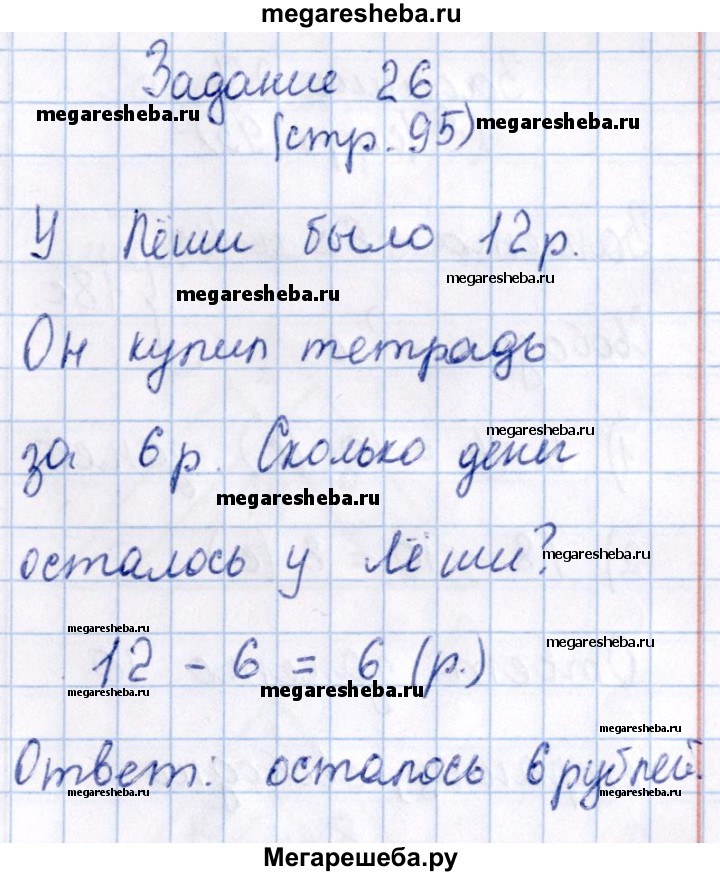 megaresheba.ru
Задание 26
megaresheba.ru
(стр. 95)
megaresheba.ru
У Лёши было 12 р.
megaresheba.ru
megaresheba.ru
Он купил тетрадь
megaresheba.ru
за 6 р. Сколько денег
megaresheba.ru
осталось у Лёши?
megaresheba.ru
megaresheba.ru
12 - 6 = 6 (р.)
megaresheba.ru
megaresheba.ru
megaresheba.ru
megaresheba.ru
Ответ: осталось 6 рублей.
megaresheba.ru
megaresheba.ru
Мегарешеба.ру